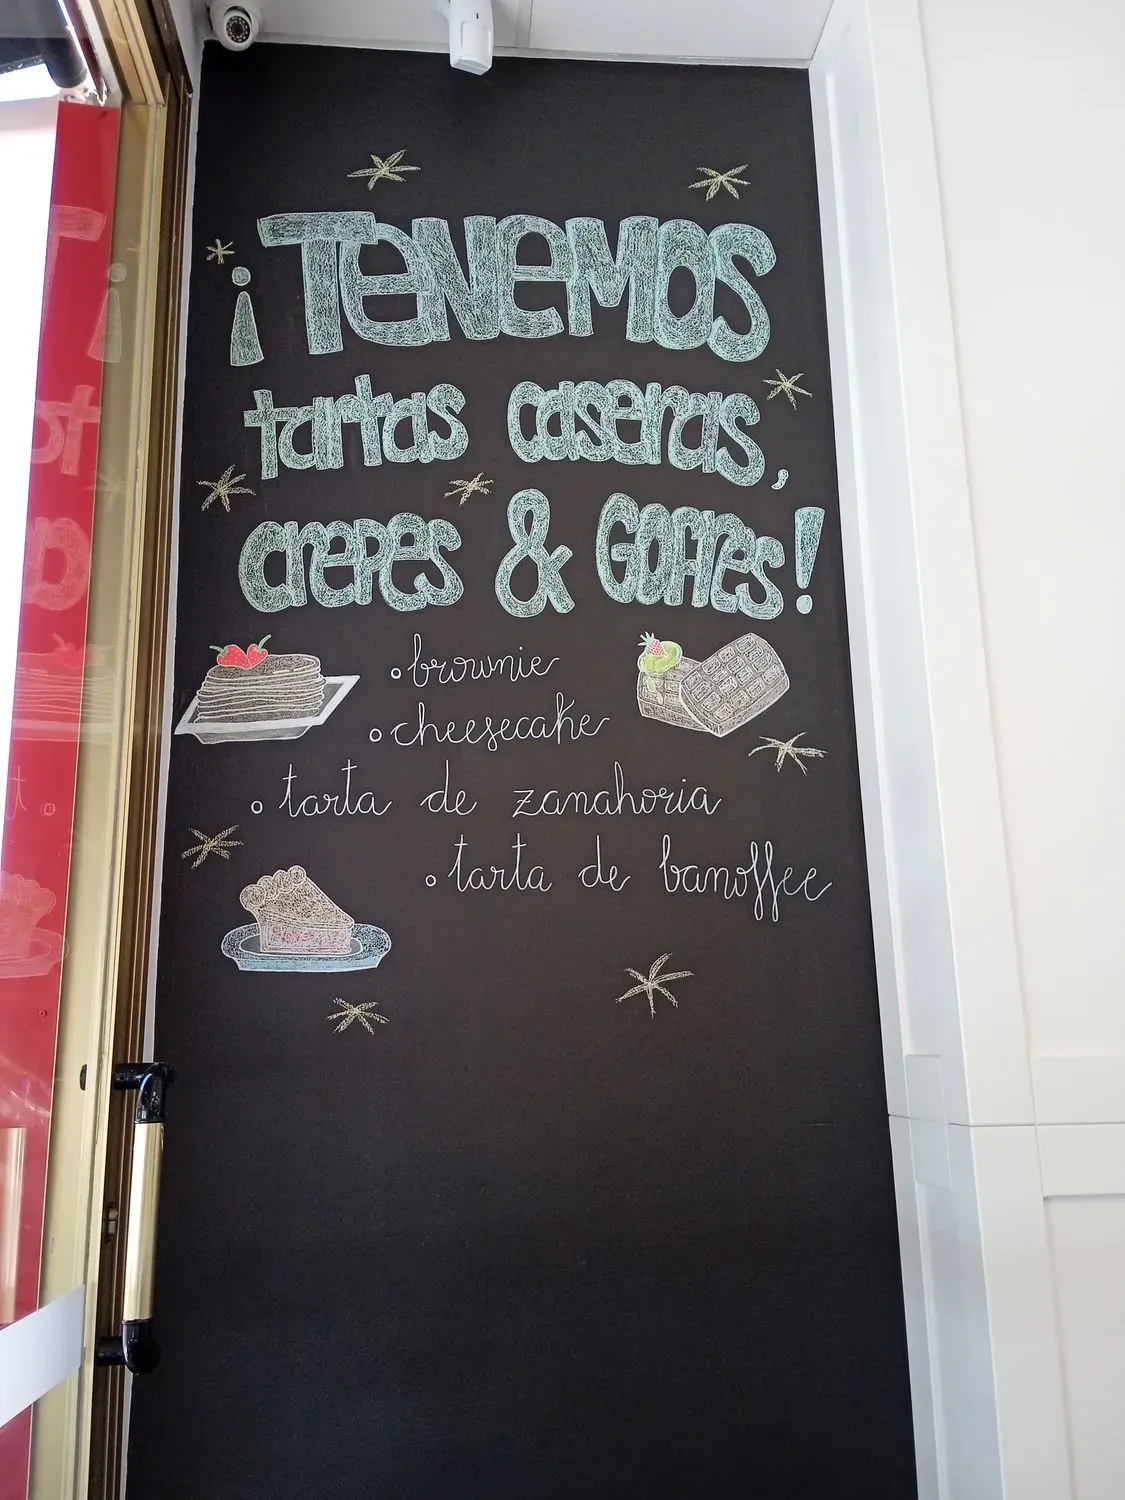 ¡TENEMOS
tartas caseras,
CREPES & GOFRES!
brownie
cheesecake
tarta de zanahoria
tarta de banoffee